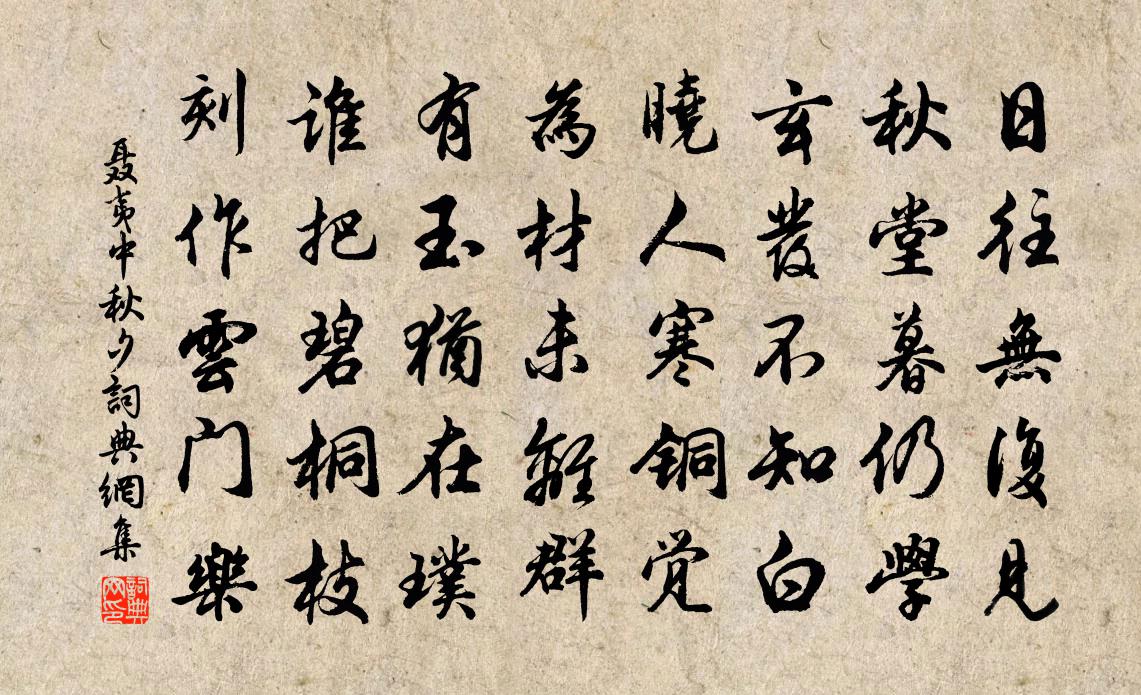 日往無復見
秋堂暮仍學
玄發不知白
曉人寒銅覺
為材未離群
有玉猶在璞
誰把碧桐枝
刻作雲门樂
聂夷中秋夕詞典網集
詞典网印